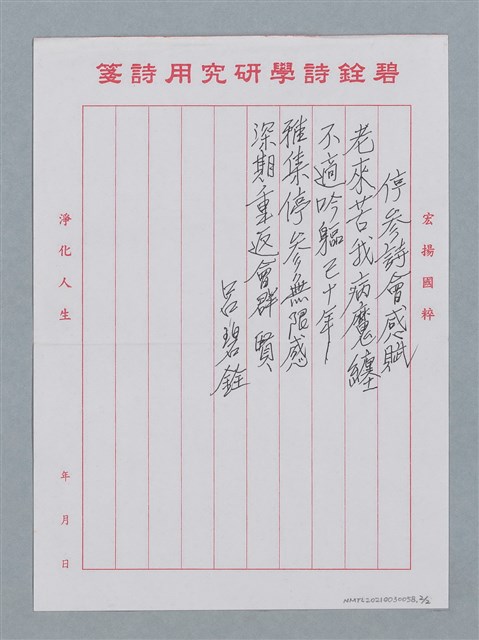 碧銓詩學研究用詩箋
宏揚國粹
停參詩會感賦
老來苦我病魔纏
不適吟軀已十年
雅集停參無限感
深期重返會群賢
呂碧銓
淨化人生
年月日
NMTL20210030058.2/2